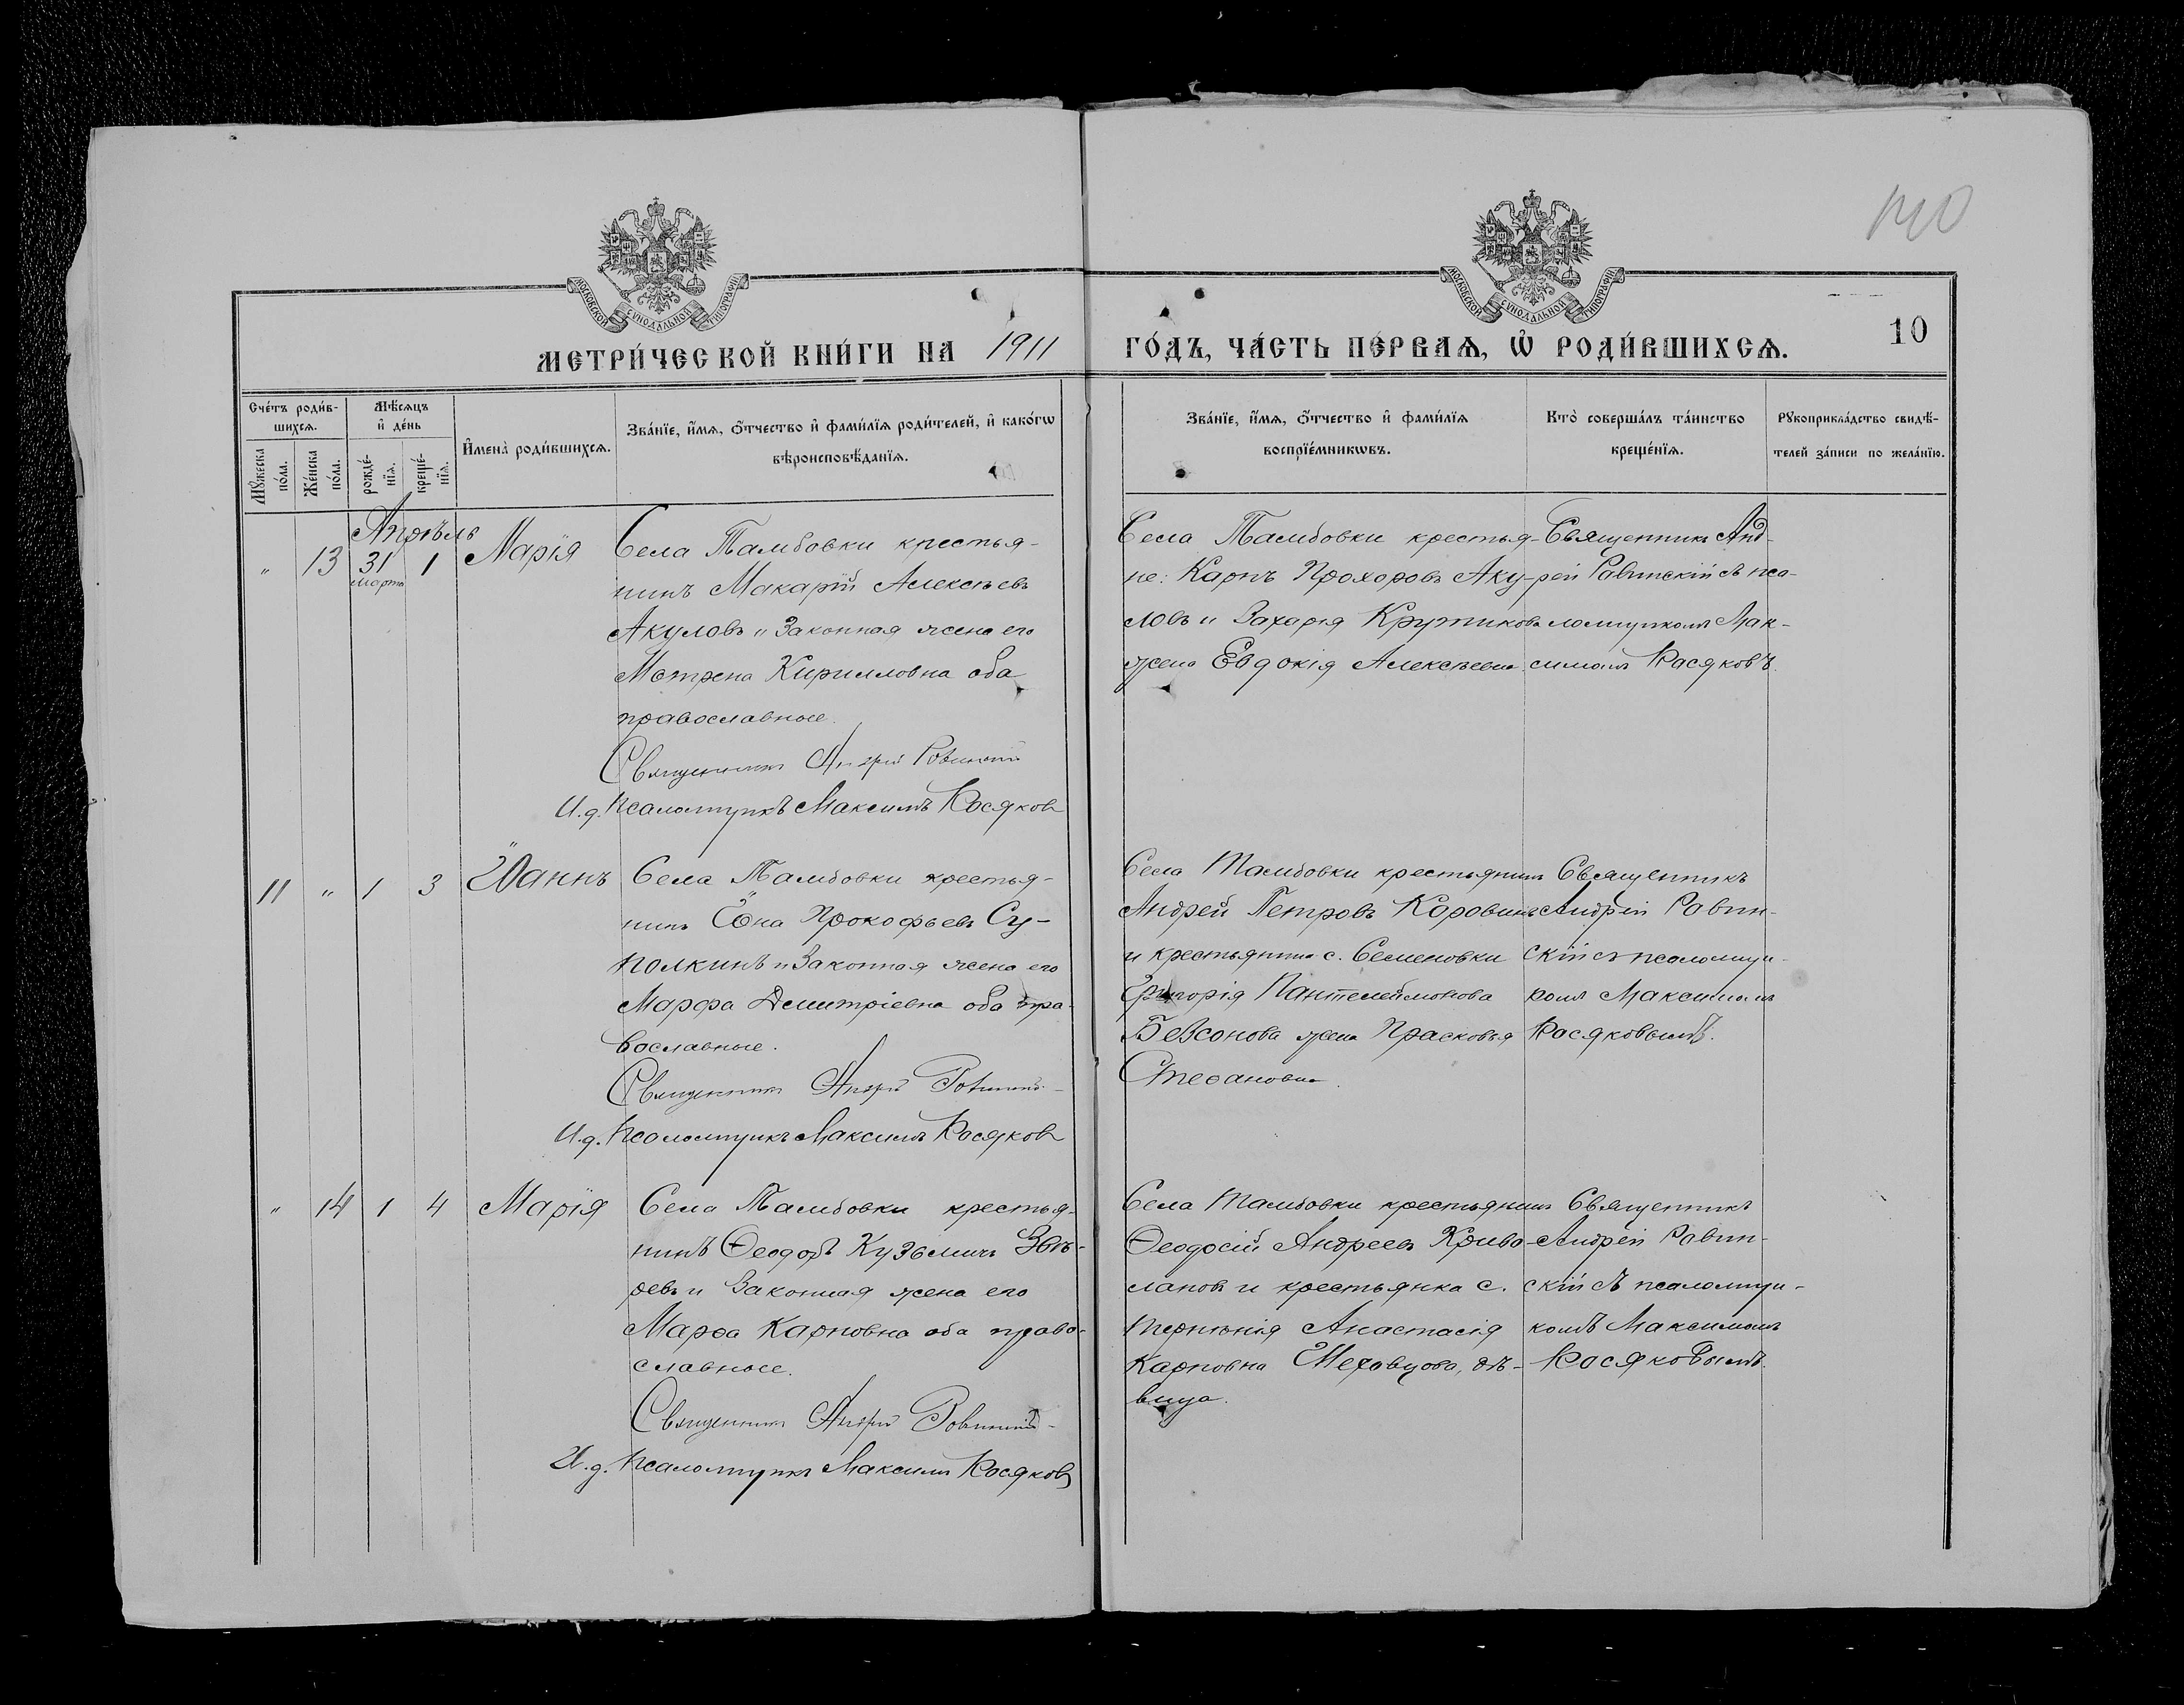 140
МОСКОВСКОЙ СѴНОДАЛЬНОЙ ТИПОГРАФІИ
МОСКОВСКОЙ СѴНОДАЛЬНОЙ ТИПОГРАФІИ
МЕТРИ́ЧЕСКОЙ КНИ́ГИ НА 1911 ГО́ДЪ, ЧА́СТЬ ПЕ́РВАѦ, Ѡ҆ РОДИ́ВШИХСѦ.
10
Сче́тъ роди́в-
шихсѧ.
Мꙋ́жеска
по́ла.
Же́нска
по́ла.
Мѣ́сѧцъ
и҆ де́нь
рожде́-
нїѧ.
креще́-
нїѧ.
И҆мена̀ роди́вшихсѧ.
Зва́нїе, и҆́мѧ, ѻ҆́тчество и҆ фами́лїѧ роди́телей, и҆ како́гѡ
вѣроисповѣ́данїѧ.
Зва́нїе, и҆́мѧ, ѻ҆́тчество и҆ фами́лїѧ
воспрїе́мникѡвъ.
Кто̀ соверша́лъ та́инство
креще́нїѧ.
Рꙋкоприкла́дство свидѣ́-
телей за́писи по жела́нїю.
Апрѣль
" 13 31 1 Марія
марта
Села Тамбовки крестья-
нинъ Макарій Алексѣевъ
Акуловъ и Законная жена его
Матрена Кирилловна оба
православные.
Священникъ Андрей Равинскій
И.д. Псаломщикъ Максимъ Косяковъ
Села Тамбовки крестья-
не: Карпъ Прохоровъ Аку-
ловъ и Захарія Крутикова
жена Евдокія Алексѣевна
Священникъ Анд-
рей Равинскій съ пса-
ломщикомъ Мак-
симомъ Косяковъ.
11 " 1 3 Іоаннъ
Села Тамбовки крестья-
нинъ Іона Прокофьевъ Су-
полкинъ и Законная жена его
Марфа Димитріевна оба пра-
вославные.
Священникъ Андрей Равинскій
И.д. Псаломщикъ Максимъ Косяковъ
Села Тамбовки крестьянинъ
Андрей Петровъ Коровинъ
и крестьянина с. Семеновки
Григорія Пантелеймонова
Безсонова жена Прасковья
Стефановна.
Священникъ
Андрей Равин-
скій съ псаломщи-
комъ Максимомъ
Косяковымъ.
" 14 1 4 Марія
Села Тамбовки крестья-
нинъ Ѳеодоръ Кузьмичъ Звѣ-
ревъ и Законная жена его
Марѳа Карповна оба право-
славные.
Священникъ Андрей Равинскій
И.д. Псаломщикъ Максимъ Косяковъ
Села Тамбовки крестьянинъ
Ѳеодосій Андреевъ Криво-
лаповъ и крестьянка с.
Терненія Анастасія
Карповна Меховцова, дѣ-
вица.
Священникъ
Андрей Равин-
скій съ псаломщи-
комъ Максимомъ
Косяковымъ.